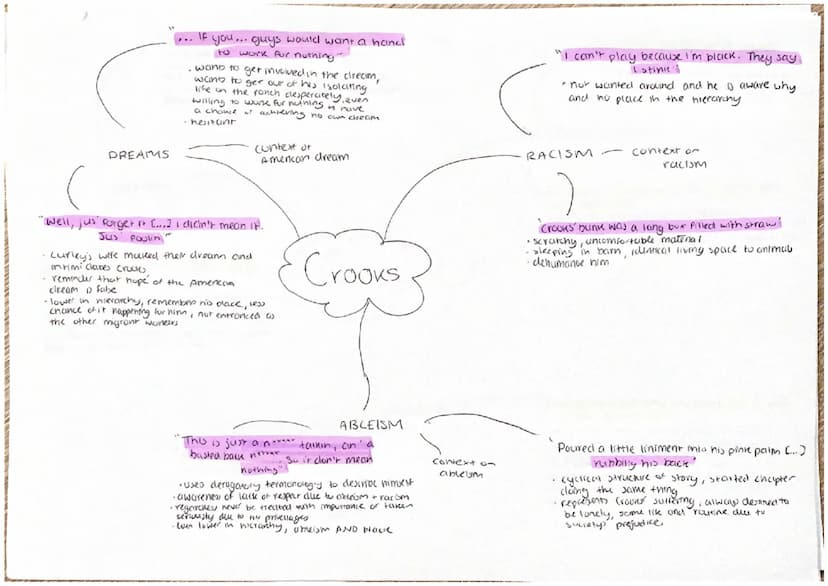 "... If you... guys would want a hand
to work for nothing-
· wants to get involved in the dream,
wants to get out of his isolating
life on the ranch desperately, even
willing to work for nothing to have
a chance at achieving his own dream
· hesitant
DREAMS
context of
American dream
"Well, jus' forget it [...] I didn't mean it.
Jus' foolin'"
· Curley's wife mocked their dream and
intimidates Crooks
· reminder that hope of the American
dream is false
· lower in hierarchy, remembers his place, less
chance of it happening for him, not entranced as
the other migrant workers
Crooks
"I can't play because I'm black. They say
I stink"
· not wanted around and he is aware why
and his place in the hierarchy
RACISM
context on
racism
"Crooks' bunk was a long box filled with straw"
· scratchy, uncomfortable material
· sleeping in barn, identical living space to animals
dehumanise him
ABLEISM
"This is just a n***** talkin', an' a
busted back n*****. So it don't mean
nothing"
· uses derogatory terminology to describe himself
· awareness of lack of respect due to ableism + racism
· regardless never be treated with importance or taken
seriously due to no privileges
· even lower in hierarchy, ableism AND
context on
ableism
"Poured a little liniment into his pink palm [...]
rubbing his back"
· cyclical structure of story, started chapter
doing the same thing
· represents Crooks' suffering, always destined to
be lonely, same life and routine due to
society's prejudice